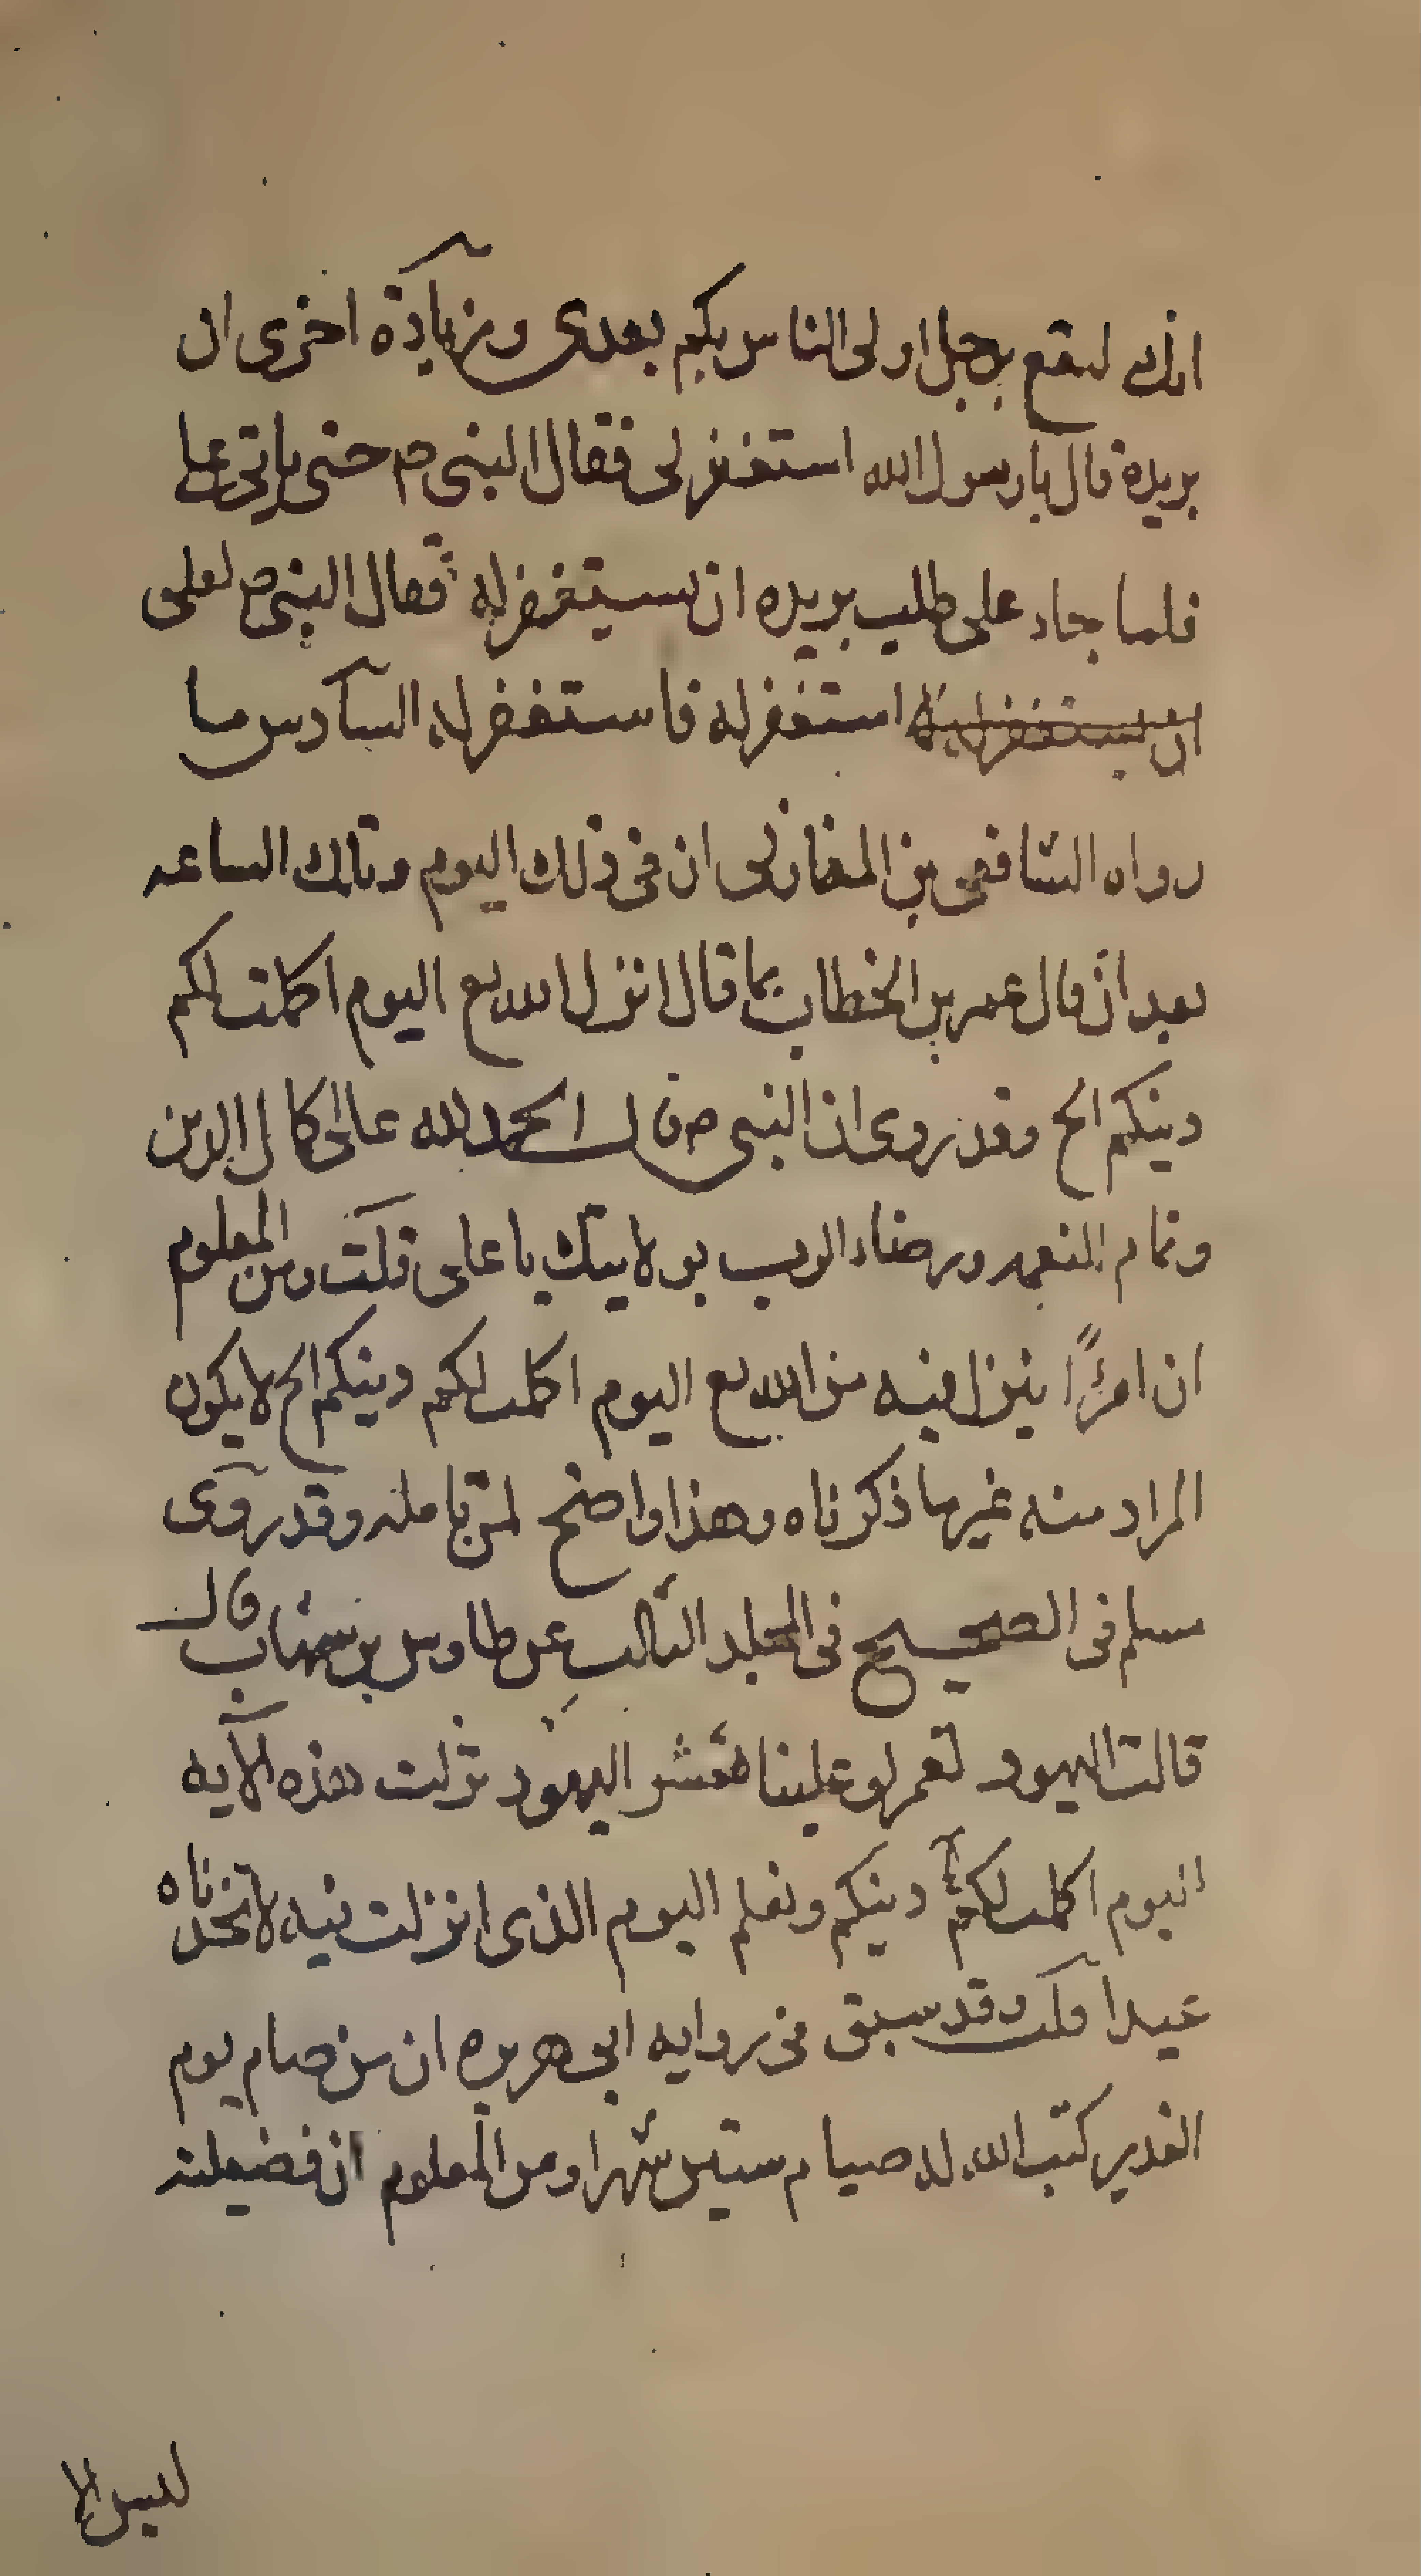 انك لتقع برجل اولى الناس بكم بعدى وزيادة اخرى ان
بريدة قال يارسول الله استغفر لى فقال النبى ص حتى ياتى على
فلما جاء على طلب بريده ان يستغفر له فقال النبى ص لعلى
ان يستغفر له استغفر له فاستغفر له السادس ما
رواه الشافعى بن المغازلى ان فى ذلك اليوم وتلك الساعه
بعد ان قال عمر بن الخطاب بما قال انزل الله تع اليوم اكملت لكم
دينكم الخ وقد روى ان النبى ص قال الحمد لله على اكمال الدين
وتمام النعمه ورضاء الرب بولايتك يا على قلت ومن المعلوم
ان امرًا ينزل فيه من الله تع اليوم اكملت لكم دينكم الخ لا يكون
المراد منه غير ما ذكرناه وهذا واضح لمن تامله وقد روى
مسلم فى الصحيح فى المجلد الثالث عن طاوس بن شهاب قال
قالت اليهود لعمر لو علينا معشر اليهود نزلت هذه الآيه
اليوم اكملت لكم دينكم ونعلم اليوم الذى انزلت فيه لاتخذناه
عيدا قلت وقد سبق فى روايه ابى هريره ان من صام يوم
الغدير كتب الله له صيام ستين شهرا ومن المعلوم ان فضيلته
ليس الا